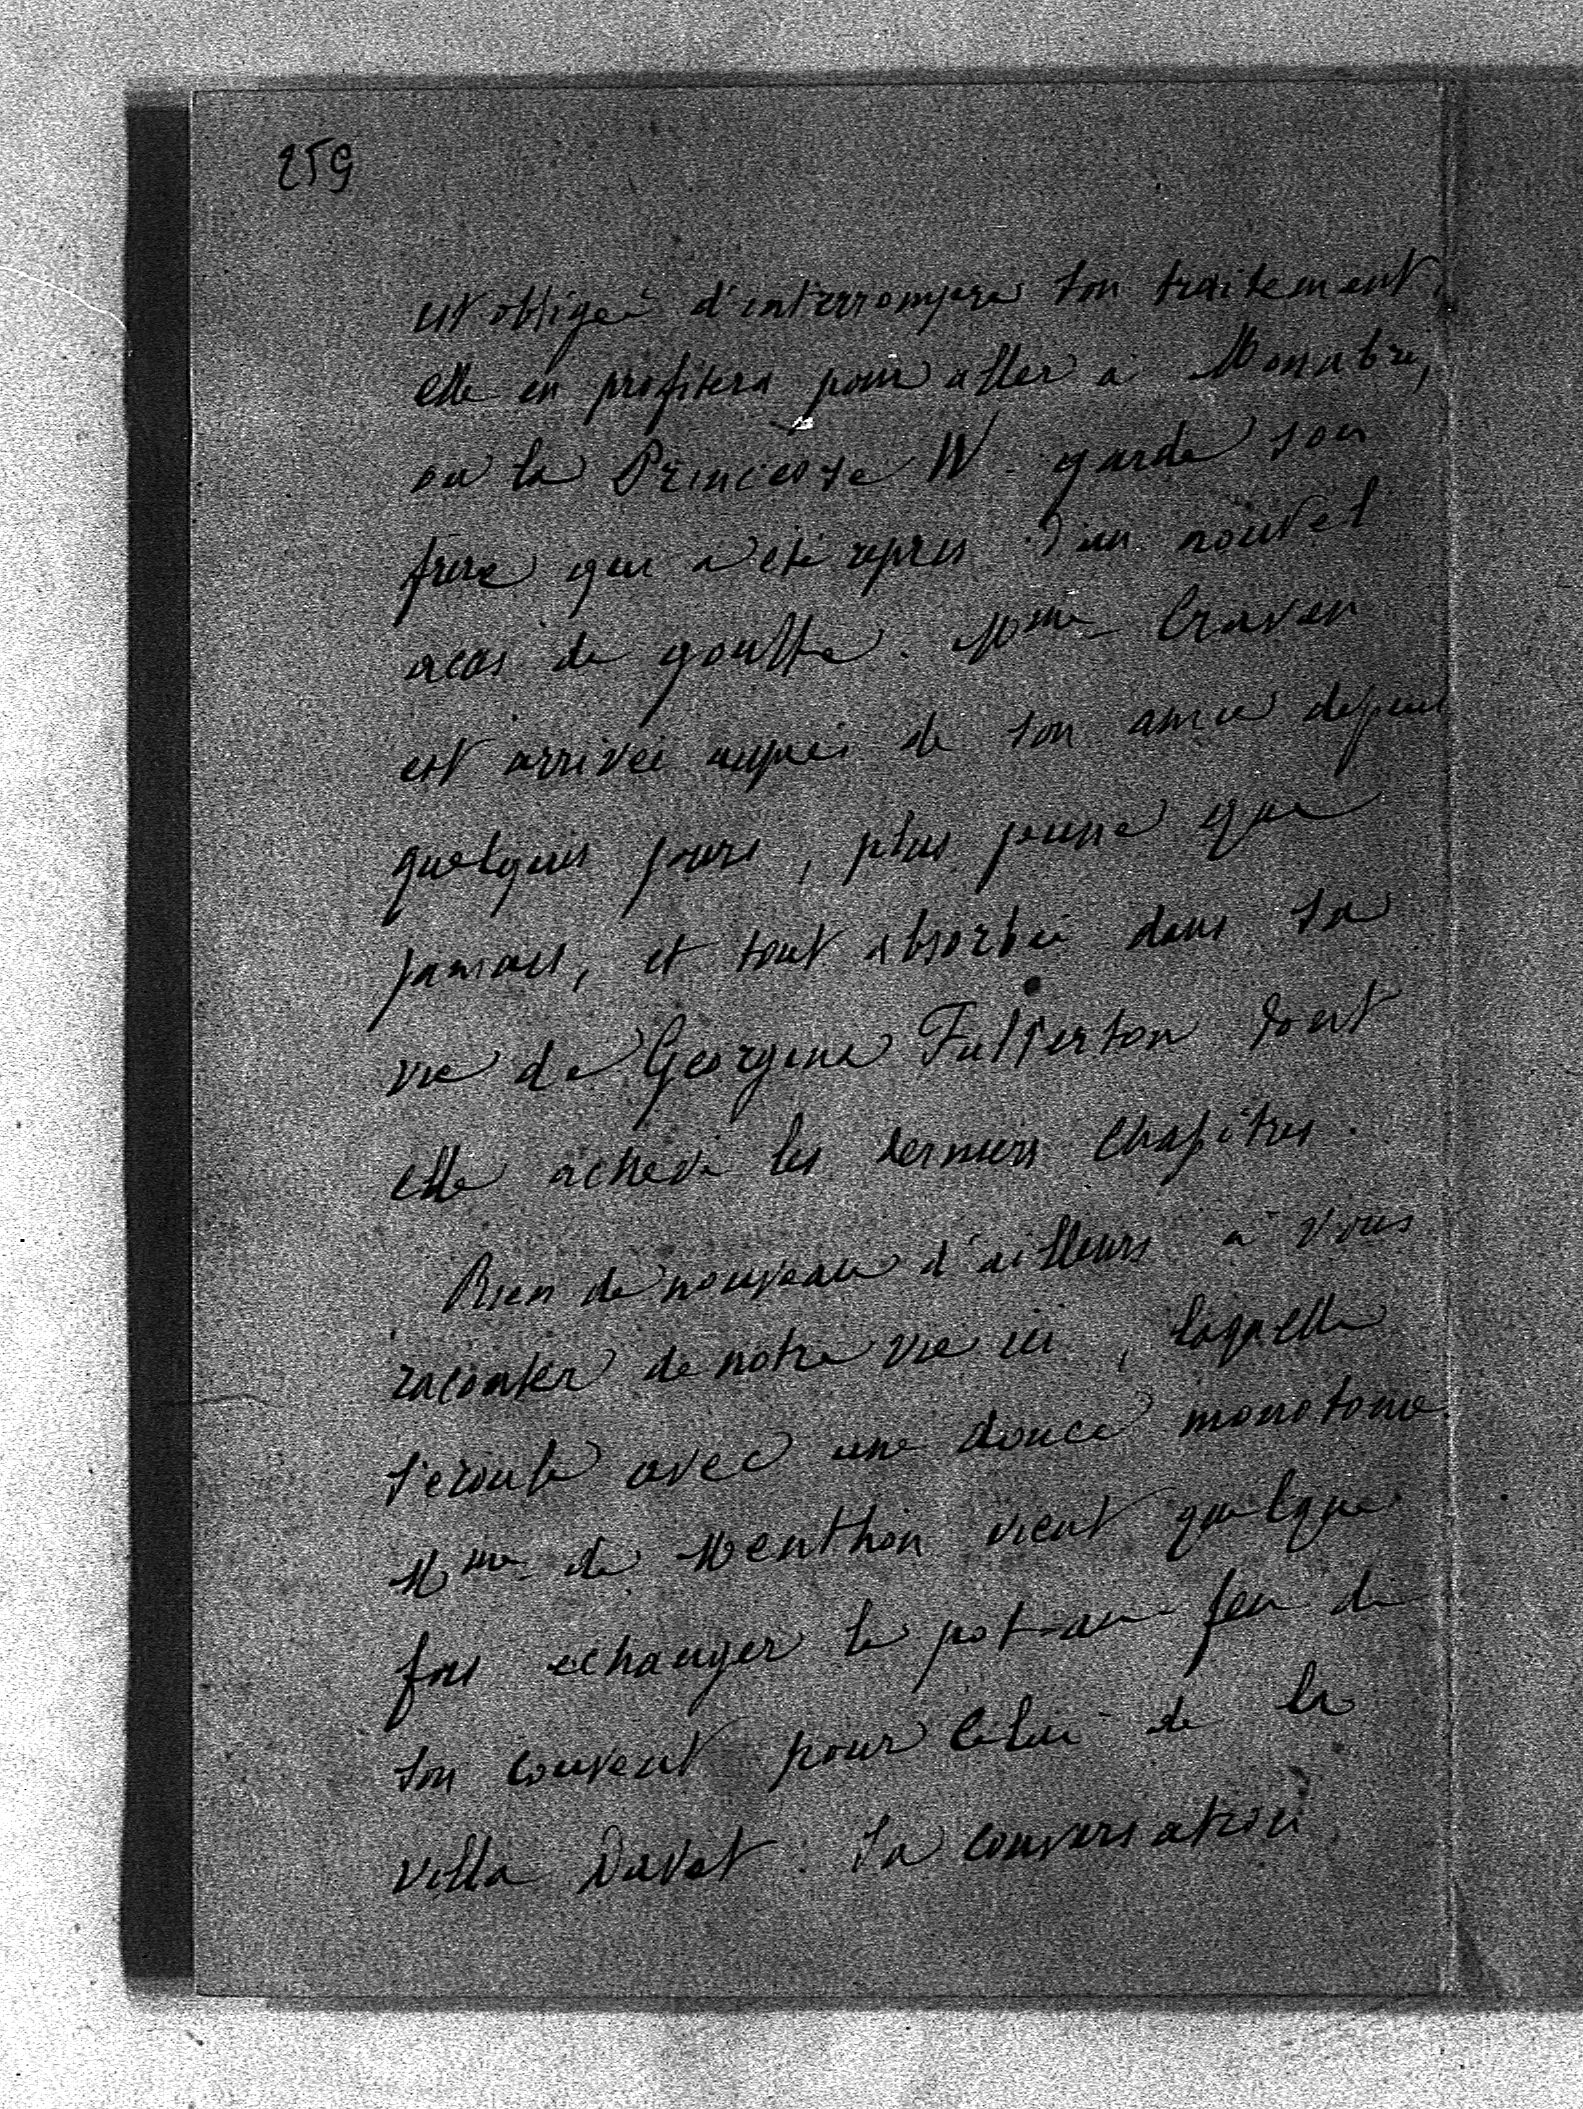 259
est obligée d'interrompre son traitement,
elle en profitera pour aller à Monabri,
ou la Princesse W. garde son
frère qui a été repris d'un nouvel
accès de goutte. Mme Craven
est arrivée auprès de son amie depuis
quelques jours, plus jeune que
jamais, et tout absorbée dans la
vie de Georgina Fullerton dont
elle achève les derniers chapitres.
Rien de nouveau d'ailleurs à vous
raconter de notre vie ici, laquelle
s'écoule avec une douce monotonie.
Mme de Menthon vient quelque
fois échanger le pot-au-feu de
son couvent pour celui de la
villa Davet. Sa conversation